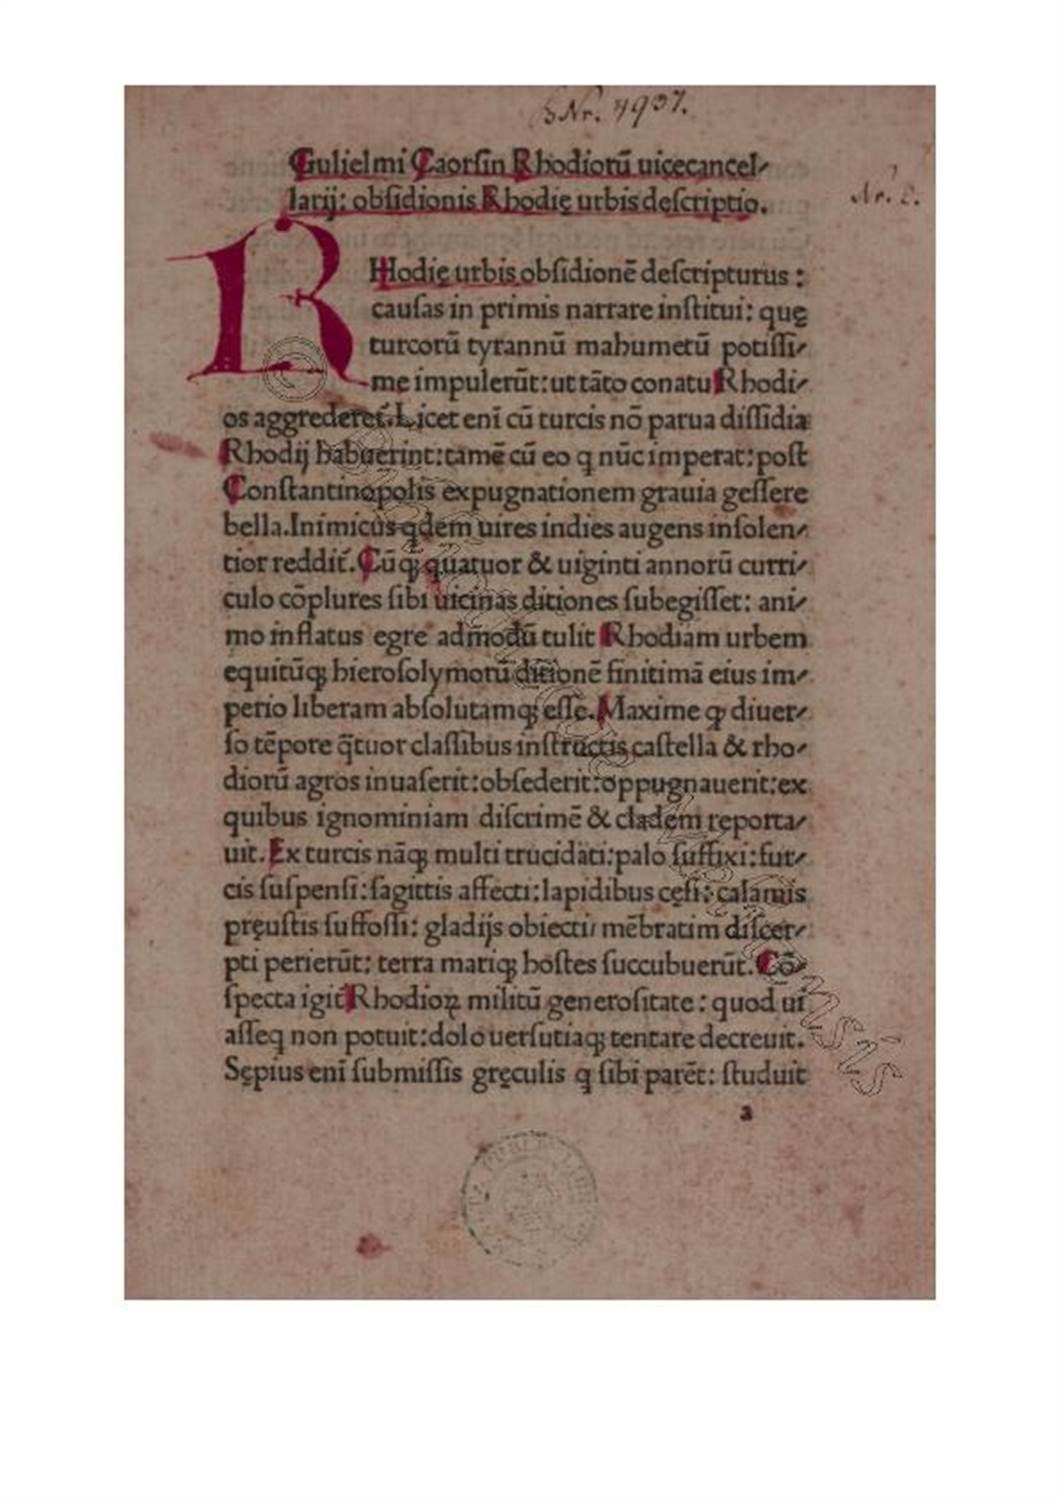 Nr. 4937.
Gulielmi Caorsin Rhodiorū uicecancel⸗
larij: obsidionis Rhodię urbis descriptio.
Nr. 2.
RHodię urbis obsidionē descripturus :
causas in primis narrare institui: quę
turcorū tyrannū mahumetū potissi⸗
me impulerūt: ut tāto conatu Rhodi⸗
os aggrederet᷑. Licet enī cū turcis nō parua dissidia
Rhodij habuerint: tamē cū eo q nūc imperat: post
Constantinopolis expugnationem grauia gessere
bella. Inimicus qdem uires indies augens insolen⸗
tior reddit᷑. Cūqꝫ quatuor & uiginti annorū curri⸗
culo cōplures sibi uicinas ditiones subegisset: ani⸗
mo inflatus egre admodū tulit Rhodiam urbem
equitūqꝫ hierosolymorū ditionē finitimā eius im⸗
perio liberam absolutamqꝫ esse. Maxime ꝙ diuer⸗
so tēpore q̄tuor classibus instructis castella & rho⸗
diorū agros inuaserit: obsederit: oppugnauerit: ex
quibus ignominiam discrimē & cladem reporta⸗
uit. Ex turcis nāqꝫ multi trucidati: palo suffixi: fur⸗
cis suspensi: sagittis affecti: lapidibus cęsi: calamis
pręustis suffossi: gladijs obiecti/ mēbratim discer⸗
pti perierūt: terra mariqꝫ hostes succubuerūt. Cō⸗
specta igit᷑ Rhodioꝝ militū generositate : quod ui
asseq non potuit: dolo uersutiaqꝫ tentare decreuit.
Sępius enī submissis gręculis q sibi parēt: studuit
a